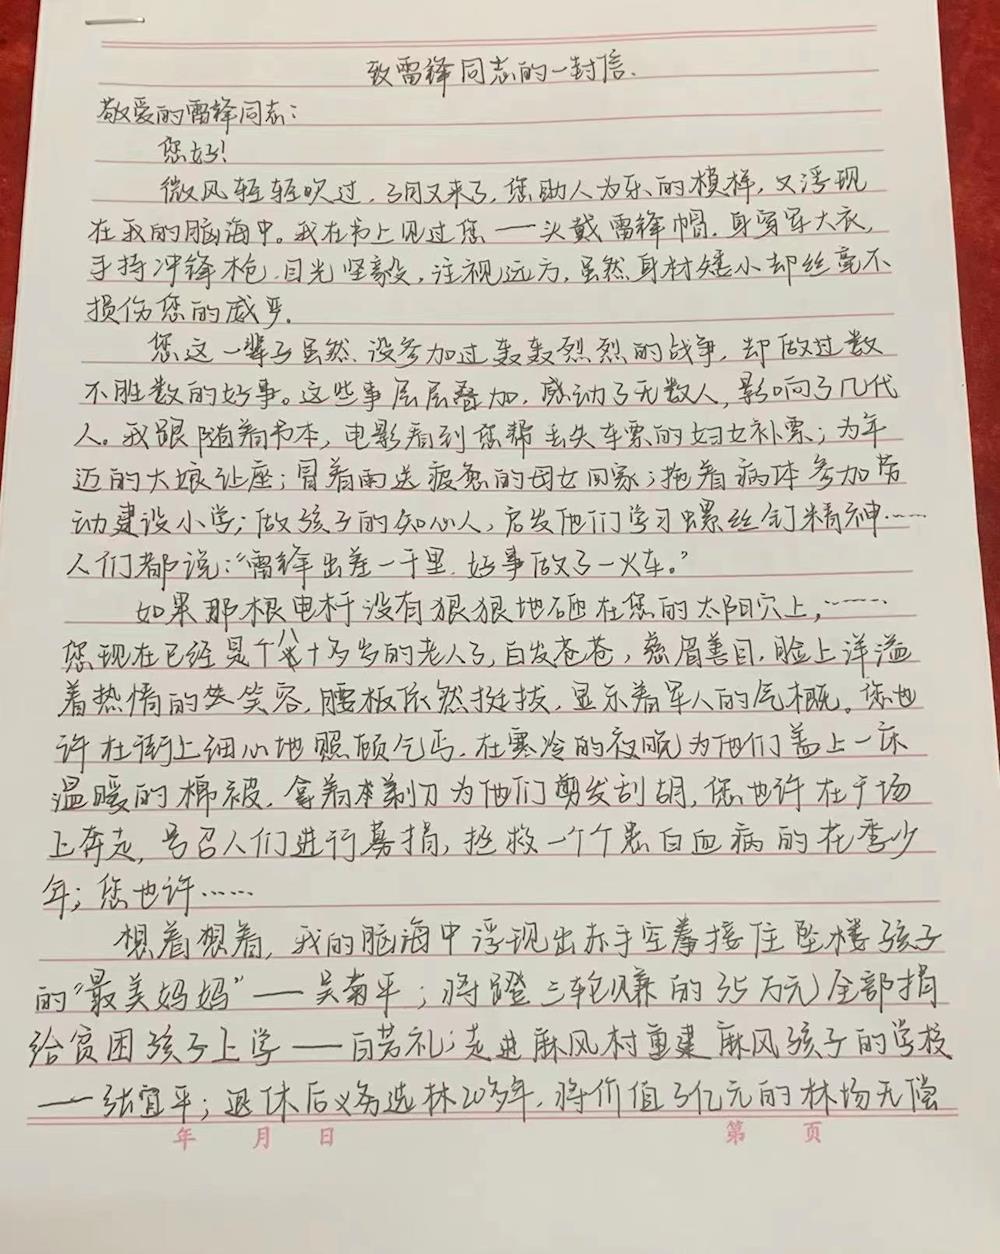 致雷锋同志的一封信.
敬爱的雷锋同志:
您好!
微风轻轻吹过,3月又来了,您助人为乐的模样,又浮现
在我的脑海中。我在书上见过您——头戴雷锋帽.身穿军大衣,
手持冲锋枪.目光坚毅,注视远方,虽然身材矮小却丝毫不
损伤您的威严.
您这一辈子虽然.没参加过轰轰烈烈的战争,却做过数
不胜数的好事。这些事层层叠加,感动了无数人,影响了几代
人。我跟随着书本,电影看到您帮丢失车票的妇女补票;为年
迈的大娘让座;冒着雨送疲惫的母女回家;拖着病体参加劳
动建设小学;做孩子的知心人,启发他们学习螺丝钉精神……
人们都说:“雷锋出差一千里.好事做了一火车。”
如果那根电杆没有狠狠地砸在您的太阳穴上,……
您现在已经是个八十多岁的老人了,白发苍苍,慈眉善目.脸上洋溢
着热情的笑容,腰板依然挺拔,显示着军人的气概。您也
许在街上细心地照顾乞丐.在寒冷的夜晚为他们盖上一床
温暖的棉被.拿着剃刀为他们剪发刮胡,您也许在广场
上奔走,号召人们进行募捐,拯救一个个患白血病的花季少
年;您也许……
想着想着,我的脑海中浮现出赤手空拳接住坠楼孩子
的“最美妈妈”——吴菊平;将蹬三轮赚的35万元全部捐
给贫困孩子上学——白芳礼;走进麻风村重建麻风孩子的学校
——张宜平;退休后义务造林20多年.将价值3亿元的林场无偿
年 月 日
第 页